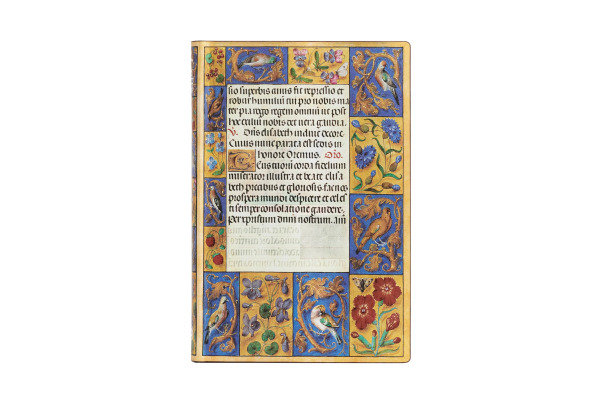 sio superbis cuius fit repressio et
robur humiliū tui pro nobis ma
ter pia rego regem omniū ut post
hoc exiliū nobis det vera gaudia.
V. Dn̄s elisabeth induit decore
Cuius nunc parata est sedis in
honore Oremus. Oro.
corda fidelium
miserator illustra et beate elisa
beth precibus et gloriosis fac nos
prospera mundi despicere et celes
ti semper consolatione gaudere.
per xpristum dnm̄ nostrum. Am̄